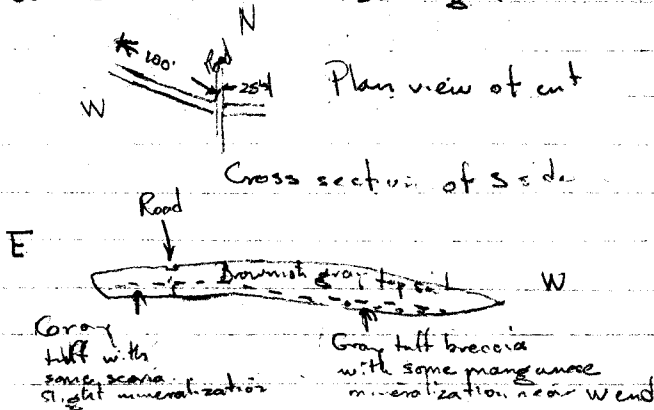 N
100'
Road
25'
Plan view of cut
W
Cross section of S side
Road
E
Brownish gray top soil
W
Gray
tuff with
some scoria
slight mineralization
Gray tuff breccia
with some manganese
mineralization near W end